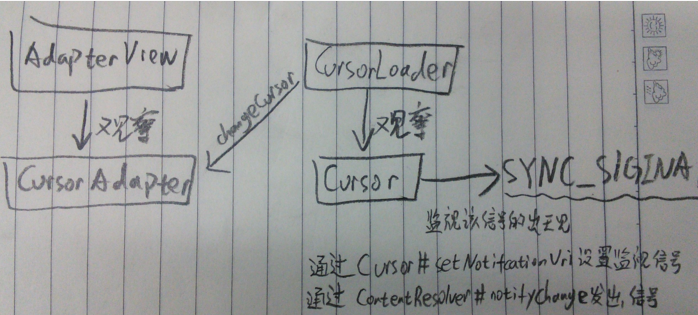 AdapterView
CursorLoader
观察
changeCursor
观察
CursorAdapter
Cursor
SYNC_SIGINA
监视该信号的出现
通过 Cursor#setNotifcationUri 设置监视信号
通过 ContentResolver#notifyChange发出信号